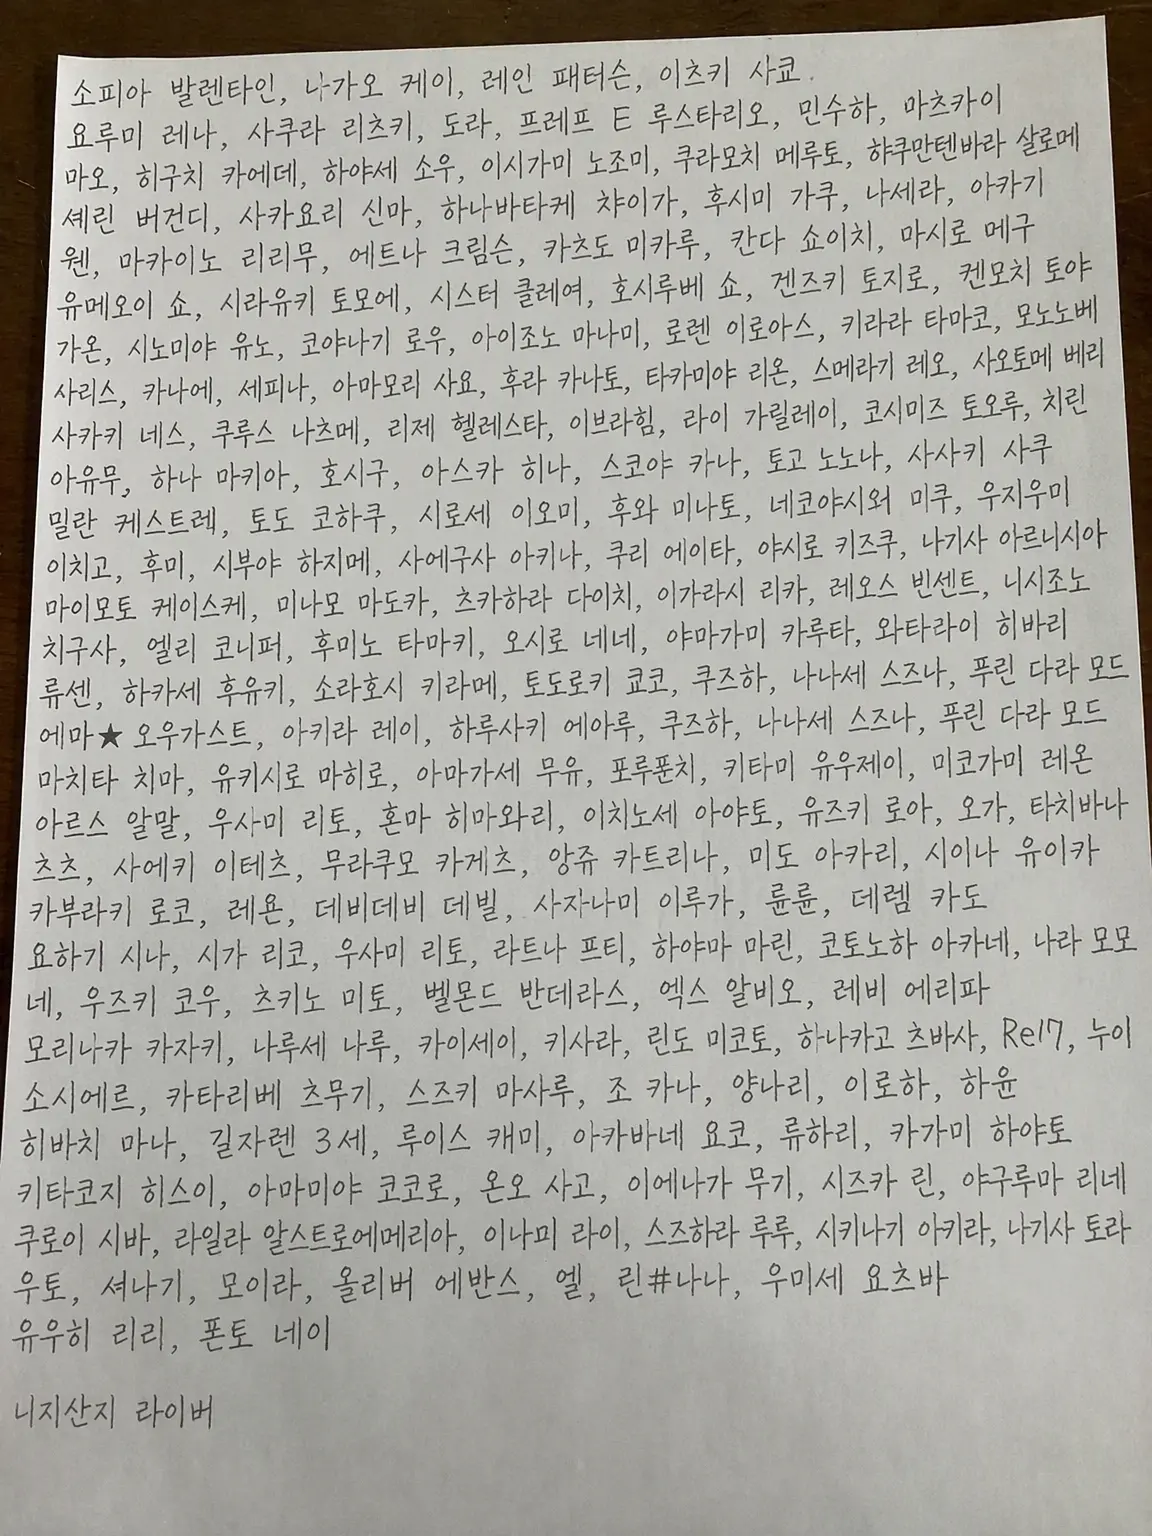 소피아 발렌타인, 나가오 케이, 레인 패터슨, 이츠키 사쿄.
요루미 레나, 사쿠라 리츠키, 도라, 프레프 E 루스타리오, 민수하, 마츠카이
마오, 히구치 카에데, 하야세 소우, 이시가미 노조미, 쿠라모치 메루토, 햐쿠만텐바라 살로메
셰린 버건디, 사카요리 신마, 하나바타케 챠이가, 후시미 가쿠, 나세라, 아카기
웬, 마카이노 리리무, 에트나 크림슨, 카츠도 미카루, 칸다 쇼이치, 마시로 메구
유메오이 쇼, 시라유키 토모에, 시스터 클레여, 호시루베 쇼, 겐즈키 토지로, 켄모치 토야
가온, 시노미야 유노, 코야나기 로우, 아이조노 마나미, 로렌 이로아스, 키라라 타마코, 모노노베
사리스, 카나에, 세피나, 아마모리 사요, 후라 카나토, 타카미야 리온, 스메라기 레오, 사오토메 베리
사카키 네스, 쿠루스 나츠메, 리제 헬레스타, 이브라힘, 라이 가릴레이, 코시미즈 토오루, 치린
아유무, 하나 마키아, 호시구, 아스카 히나, 스코야 카나, 토고 노노나, 사사키 사쿠
밀란 케스트렉, 토도 코하쿠, 시로세 이오미, 후와 미나토, 네코야시외 미쿠, 우지우미
이치고, 후미, 시부야 하지메, 사에구사 아키나, 쿠리 에이타, 야시로 키즈쿠, 나기사 아르니시아
마이모토 케이스케, 미나모 마도카, 츠카하라 다이치, 이가라시 리카, 레오스 빈센트, 니시조노
치구사, 엘리 코니퍼, 후미노 타마키, 오시로 네네, 야마가미 카루타, 와타라이 히바리
류센, 하카세 후유키, 소라호시 키라메, 토도로키 쿄코, 쿠즈하, 나나세 스즈나, 푸린 다라 모드
에마★ 오우가스트, 아키라 레이, 하루사키 에아루, 쿠즈하, 나나세 스즈나, 푸린 다라 모드
마치타 치마, 유키시로 마히로, 아마가세 무유, 포루푼치, 키타미 유우제이, 미코가미 레온
아르스 알말, 우사미 리토, 혼마 히마와리, 이치노세 아야토, 유즈키 로아, 오가, 타치바나
츠츠, 사에키 이테츠, 무라쿠모 카게츠, 앙쥬 카트리나, 미도 아카리, 시이나 유이카
카부라키 로코, 레욘, 데비데비 데빌, 사자나미 이루가, 륜륜, 데렘 카도
요하기 시나, 시가 리코, 우사미 리토, 라트나 프티, 하야마 마린, 코토노하 아카네, 나라 모모
네, 우즈키 코우, 츠키노 미토, 벨몬드 반데라스, 엑스 알비오, 레비 에리파
모리나카 카자키, 나루세 나루, 카이세이, 키사라, 린도 미코토, 하나카고 츠바사, Re17, 누이
소시에르, 카타리베 츠무기, 스즈키 마사루, 조 카나, 양나리, 이로하, 하윤
히바치 마나, 길자렌 3세, 루이스 캐미, 아카바네 요코, 류하리, 카가미 하야토
키타코지 히스이, 아마미야 코코로, 온오 사고, 이에나가 무기, 시즈카 린, 야구루마 리네
쿠로이 시바, 라일라 알스트로에메리아, 이나미 라이, 스즈하라 루루, 시키나기 아키라, 나기사 토라
우토, 셔나기, 모이라, 올리버 에반스, 엘, 린#나나, 우미세 요츠바
유우히 리리, 폰토 네이
니지산지 라이버